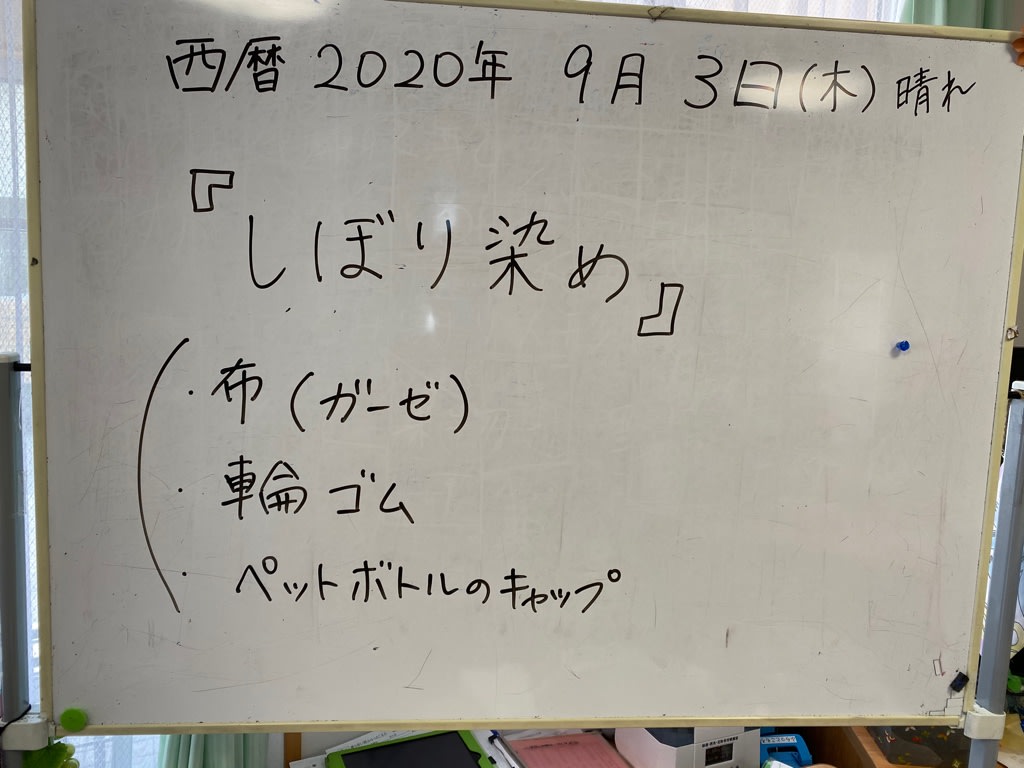 西暦 2020年 9月 3日(木) 晴れ
『しぼり染め』
・布 (ガーゼ)
・輪ゴム
・ペットボトルのキャップ